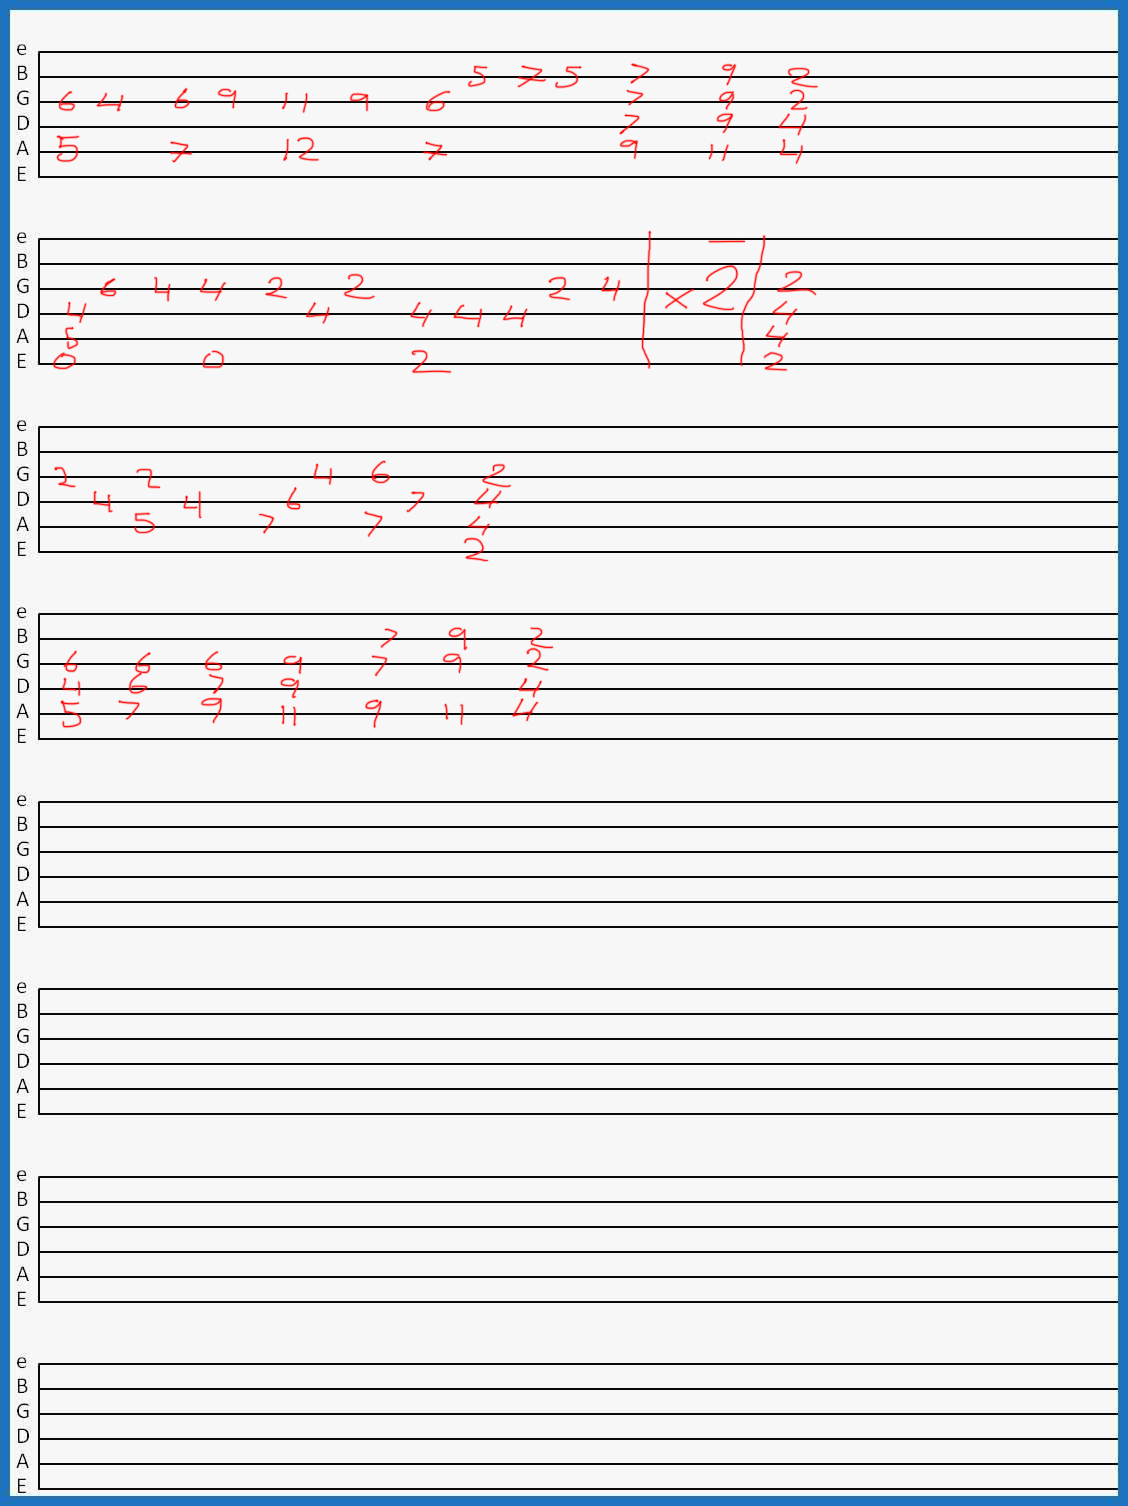 e
B 5 7 5 7 9 2
G 6 4 6 9 11 9 6 7 9 2
D 7 9 4
A 5 7 12 7 9 11 4
E
e
B
G 6 4 4 2 2 2 4 x2 2
D 4 4 4 4 4 4
A 5 4
E 0 0 2 2
e
B
G 2 2 4 6 2
D 4 4 6 7 4
A 5 7 7 4
E 2
e
B 7 9 2
G 6 6 6 9 7 9 2
D 4 6 7 9 4
A 5 7 9 11 9 11 4
E
e
B
G
D
A
E
e
B
G
D
A
E
e
B
G
D
A
E
e
B
G
D
A
E